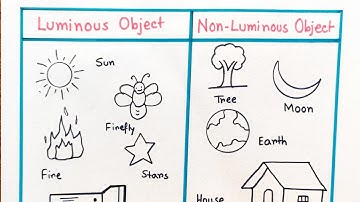 Luminous Object
Non-Luminous Object
Sun
Firefly
Fire
Stars
Tree
Moon
Earth
House